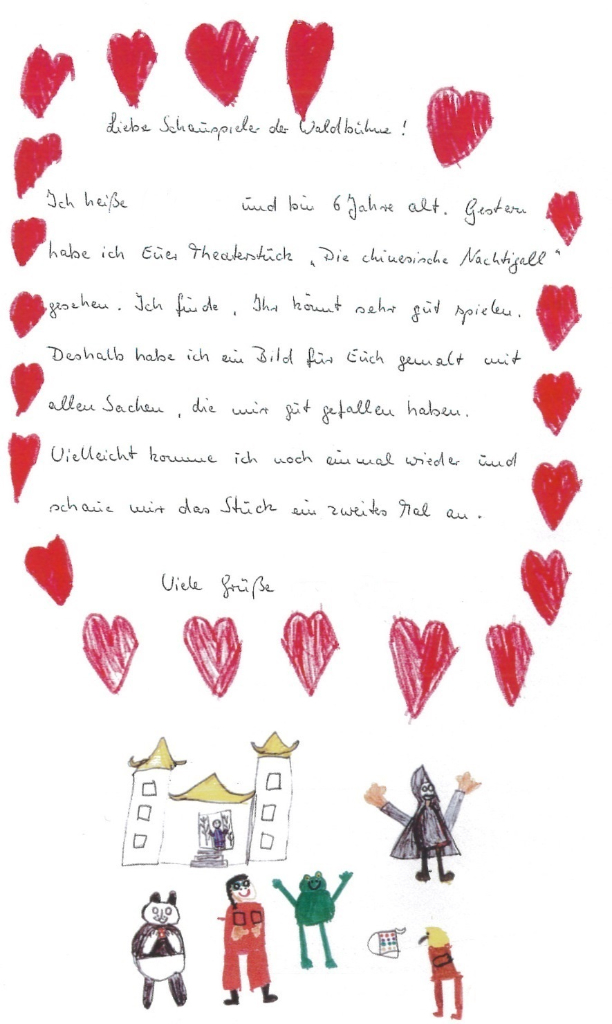 Liebe Schauspieler der Waldbühne !
Ich heiße und bin 6 Jahre alt. Gestern
habe ich Euer Theaterstück „Die chinesische Nachtigall“
gesehen. Ich finde, Ihr könnt sehr gut spielen.
Deshalb habe ich ein Bild für Euch gemalt mit
allen Sachen, die mir gut gefallen haben.
Vielleicht komme ich noch einmal wieder und
schaue mir das Stück ein zweites Mal an.
Viele Grüße